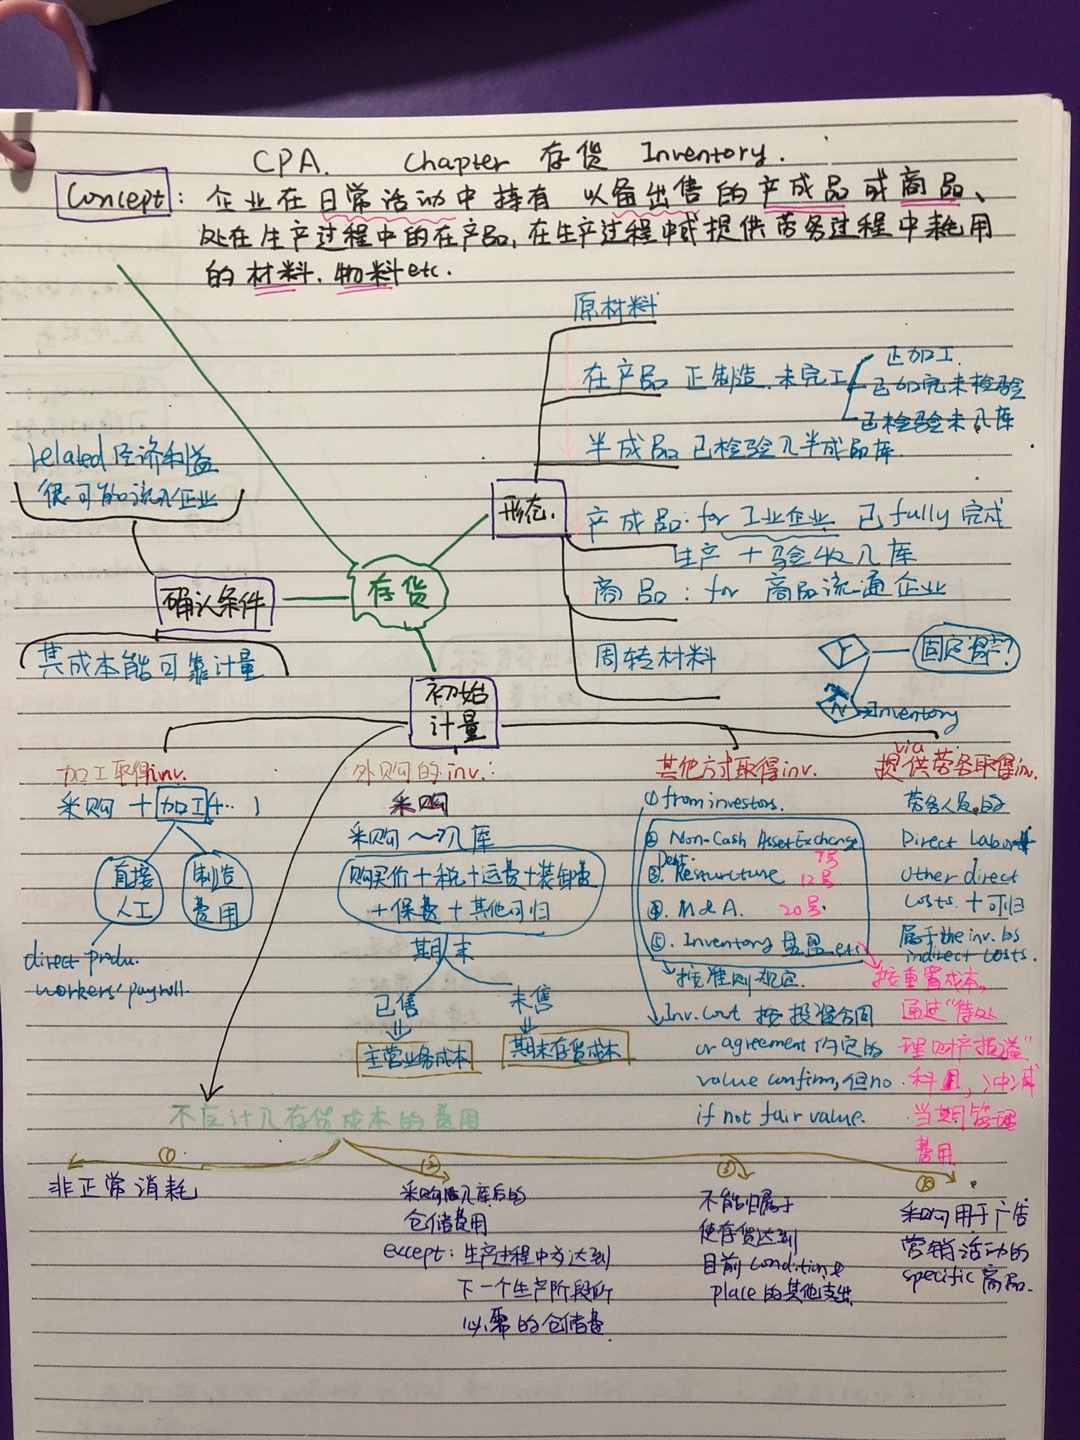 CPA. Chapter 存货 Inventory.
Concept: 企业在日常活动中持有 以备出售的产成品或商品、
处在生产过程中的在产品,在生产过程中或提供劳务过程中耗用
的材料、物料etc.
原材料
在产品 正制造,未完工
正加工.
已加完未检验
已检验未入库
半成品 已检验入半成品库.
形态.
产成品: for 工业企业 已fully完成
生产 + 验收入库
商品: for 商品流通企业
周转材料
Y
固定资产?
N
Inventory
related 经济利益
很可能流入企业
确认条件
其成本能可靠计量
存货
初始
计量
加工取得inv.
采购 + 加工(+...)
直接
人工
制造
费用
direct produ.
workers' payroll.
外购的inv.:
采购
采购~入库
购买价+税+运费+装卸费
+保费+其他可归
期末
已售
未售
主营业务成本
期末存货成本
其他方式取得inv.
① from investors.
② Non-Cash Asset Exchange 7号
③. Debt Resturcture 12号
④. M&A. 20号.
⑤. Inventory 盘盈 etc
按准则规定.
Inv. Cout 按投资合同
or agreement 约定的
value confirm, 但no
if not fair value.
via
提供劳务取得in.
劳务人员的
Direct Labor+
Other direct
costs. + 可归
属于the inv. bs
indirect costs.
按重置成本,
通过"待处
理财产损溢"
科目,冲减
当期管理
费用
不应计入存货成本的费用
①
非正常消耗
②
采购入库后的
仓储费用
except: 生产过程中为达到
下一个生产阶段所
必需的仓储费
③
不能归属于
使存货达到
目前condition &
place的其他支出
④
采购用于广告
营销活动的
specific商品.